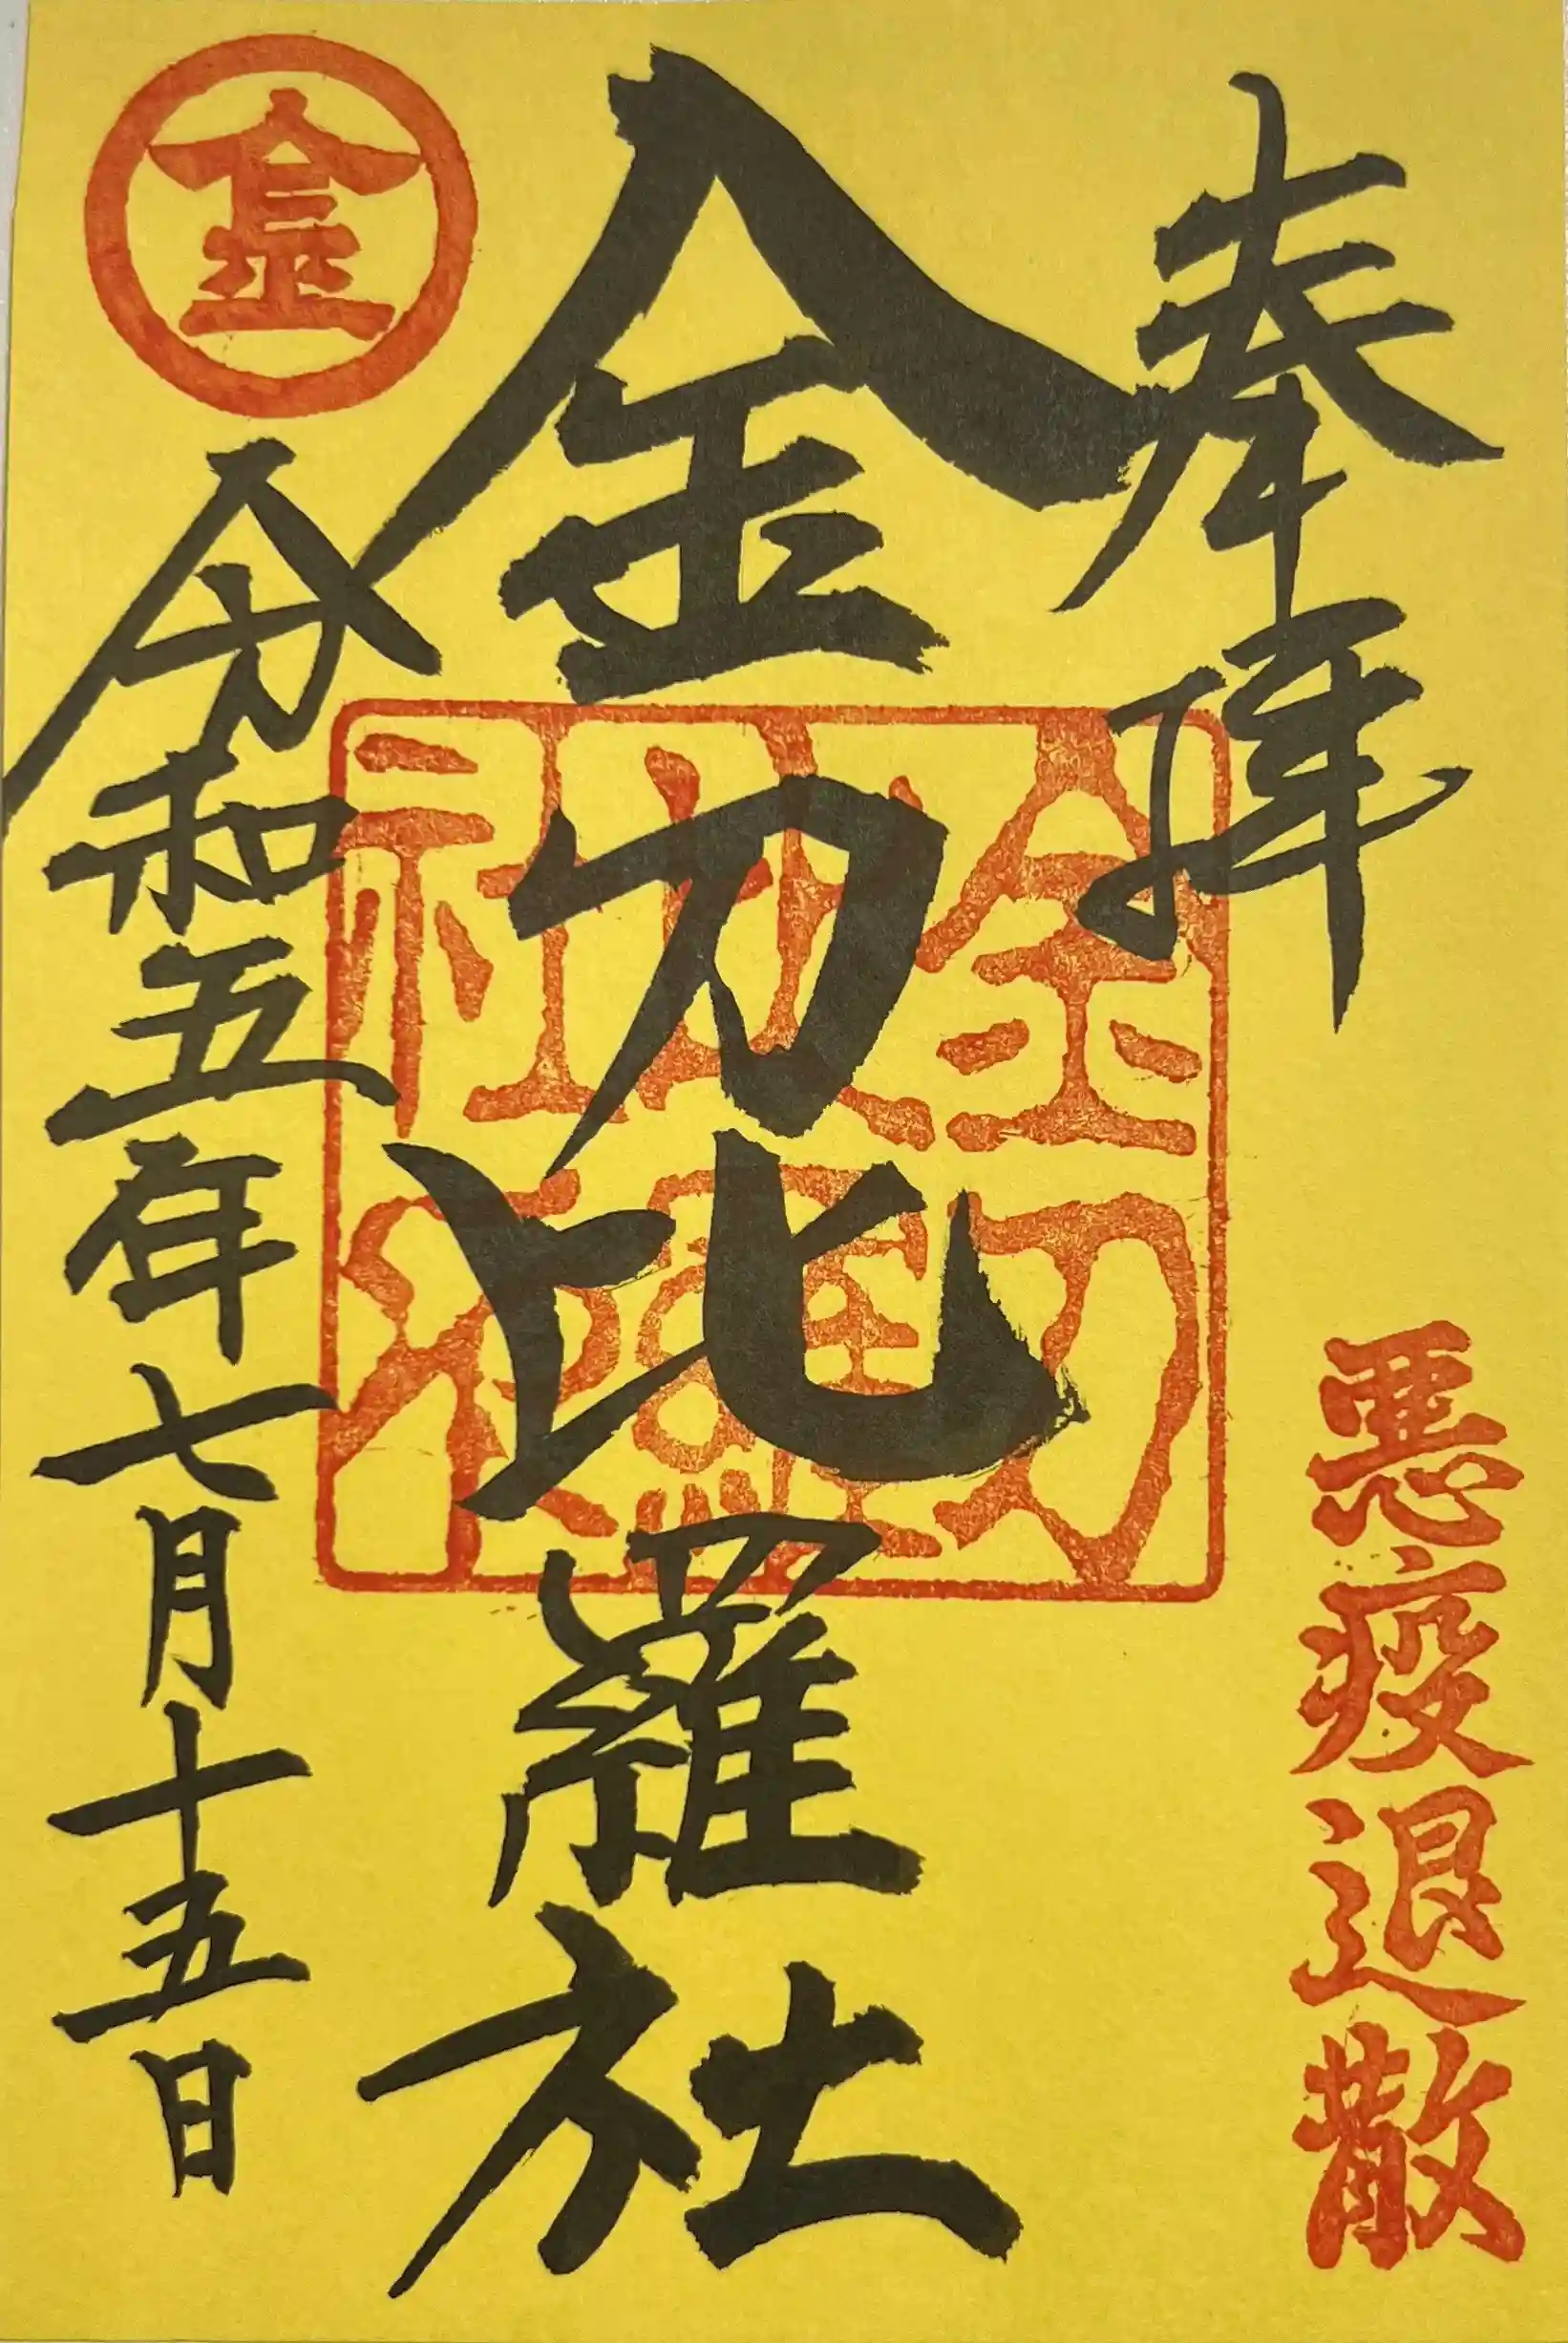 奉拝
悪疫退散
金刀比羅社
金刀比羅社之印
金
令和五年七月十五日